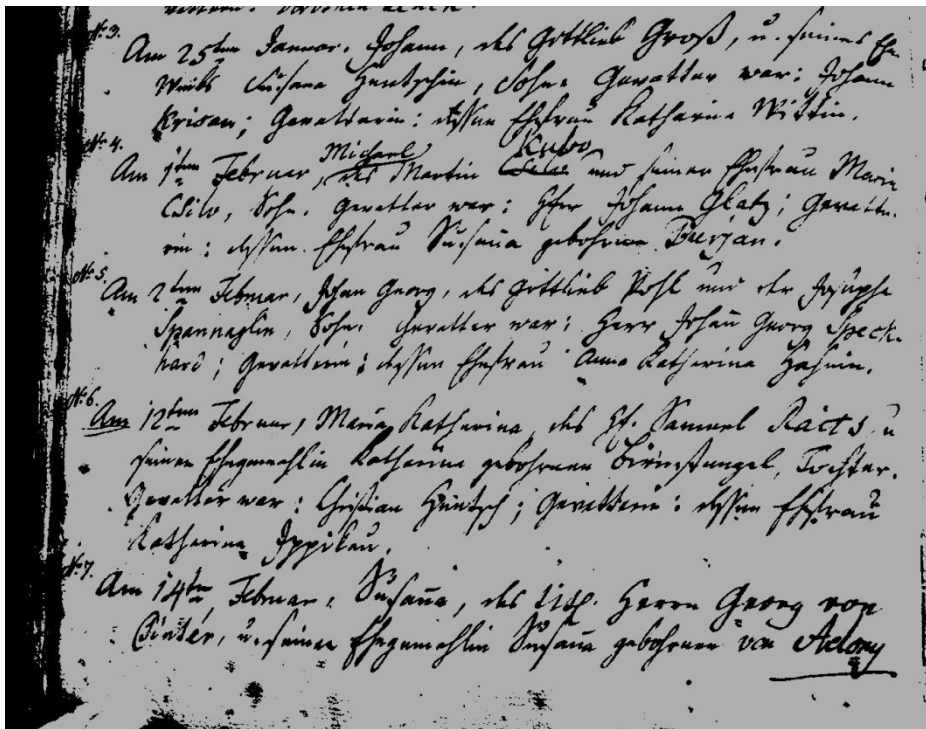 No 3.
Am 25ten Januar. Johann, des Gottlieb Groß, u. seines Ehe
Weibs Susana Hentschin, Sohn. Gevatter war: Johann
Krisan; Gevatterin: dessen Ehefrau Katharina Wittin.
No 4.
Michael Kubo
Am 1ten Februar, des Martin und seiner Ehefrau Maria
Csilo, Sohn. Gevatter war: Herr Johann Glatz; Gevatte-
rin: dessen Ehefrau Susaña gebohrne Burjan.
No 5.
Am 2ten Februar, Johan Georg, des Gottlieb Pohl und der Josepha
Spannaglin, Sohn. Gevatter war: Herr Johañ Georg Speck-
hard; Gevatterin: dessen Ehefrau Anna Katharina Hahnin.
No 6.
Am 12ten Februar, Maria Katharina, des H. Samuel Racts u
seiner Ehegemahlin Katharina gebohrnen Birnstangel, Tochter.
Gevatter war: Christian Hentsch; Gevatterin: dessen Ehefrau
Katharina
No 7.
Am 14ten Februar, Susaña, des Herrn Georg von
Pintér, u. seiner Ehegemahlin Susaña gebohrnen von Aelony